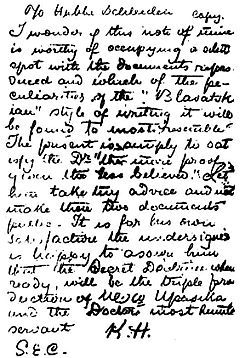 To Hubbe Schleiden
copy.
I wonder if this note of mine
is worthy of occupying a select
spot with the documents repro-
duced and which of the pe-
culiarities of the "Blavatsk
ian" style of writing it will
be found to most resemble.
The present is simply to sat
isfy the Dr "the more proof
given the less believed." Let
him take my advice and not
make these two documents
public. It is for his own
satisfaction the undersigned
is happy to assure him
that the Secret Doctrine when
ready, will be the triple pro
duction of Upasika
and the Doctor's most humble
servant K.H.
S.E.C.